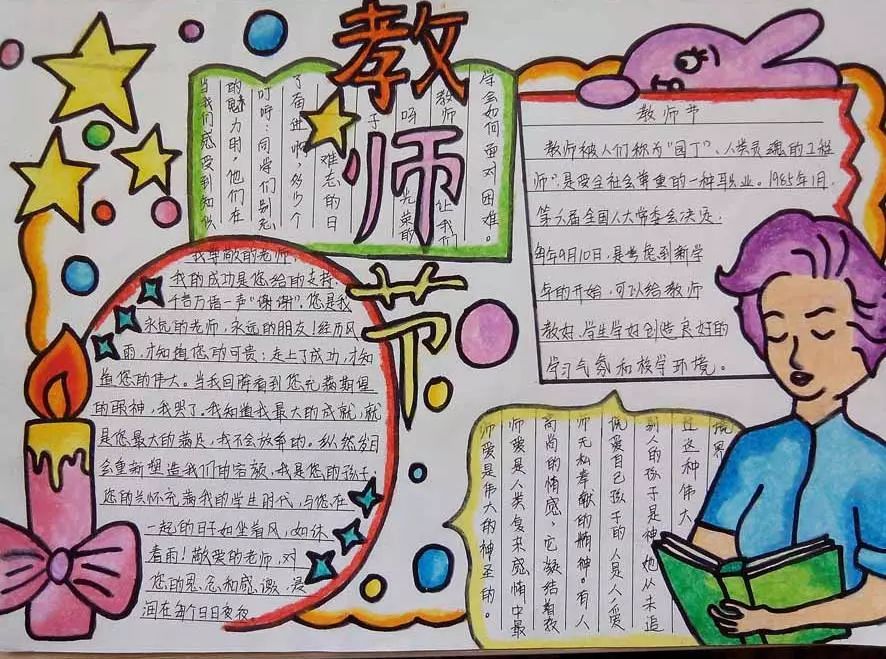 教师节
学会如何面对困难。
让我们
教师
光荣的
呀
子
难忘的日
了奋进啊,多少个
叮咛:同学们别忘
的魅力时,他们在
当我们感受到知识
教师节
教师被人们称为“园丁”、人类灵魂的工程
师”,是受全社会尊重的一种职业。1985年1月,
第六届全国人大常委会决定,
每年9月10日,是考虑到新学
年的开始,可以给教师
教好、学生学好创造良好的
学习气氛和校学环境。
我尊敬的老师
我的成功是您给的支持,
千言万语一声“谢谢”,您是我
永远的老师,永远的朋友!经历风
雨,才知道您的可贵;走上了成功,才知
道您的伟大。当我回眸看到您充满期望
的眼神,我哭了。我知道我最大的成就,就
是您最大的满足,我不会放弃的。纵然岁月
会重新塑造我们的容颜,我是您的孩子;
您的关怀充满我的学生时代,与您在
一起的日子如坐着风,如沐
着雨!敬爱的老师,对
您的思念和感激,浸
润在每个日日夜夜
师爱是伟大的神圣的。
师爱是人类复杂感情中最
高尚的情感,它凝结着教
师无私奉献的精神。有人
说爱自己孩子的人是人,爱
别人的孩子是神,她从未追
过这种伟大
境界